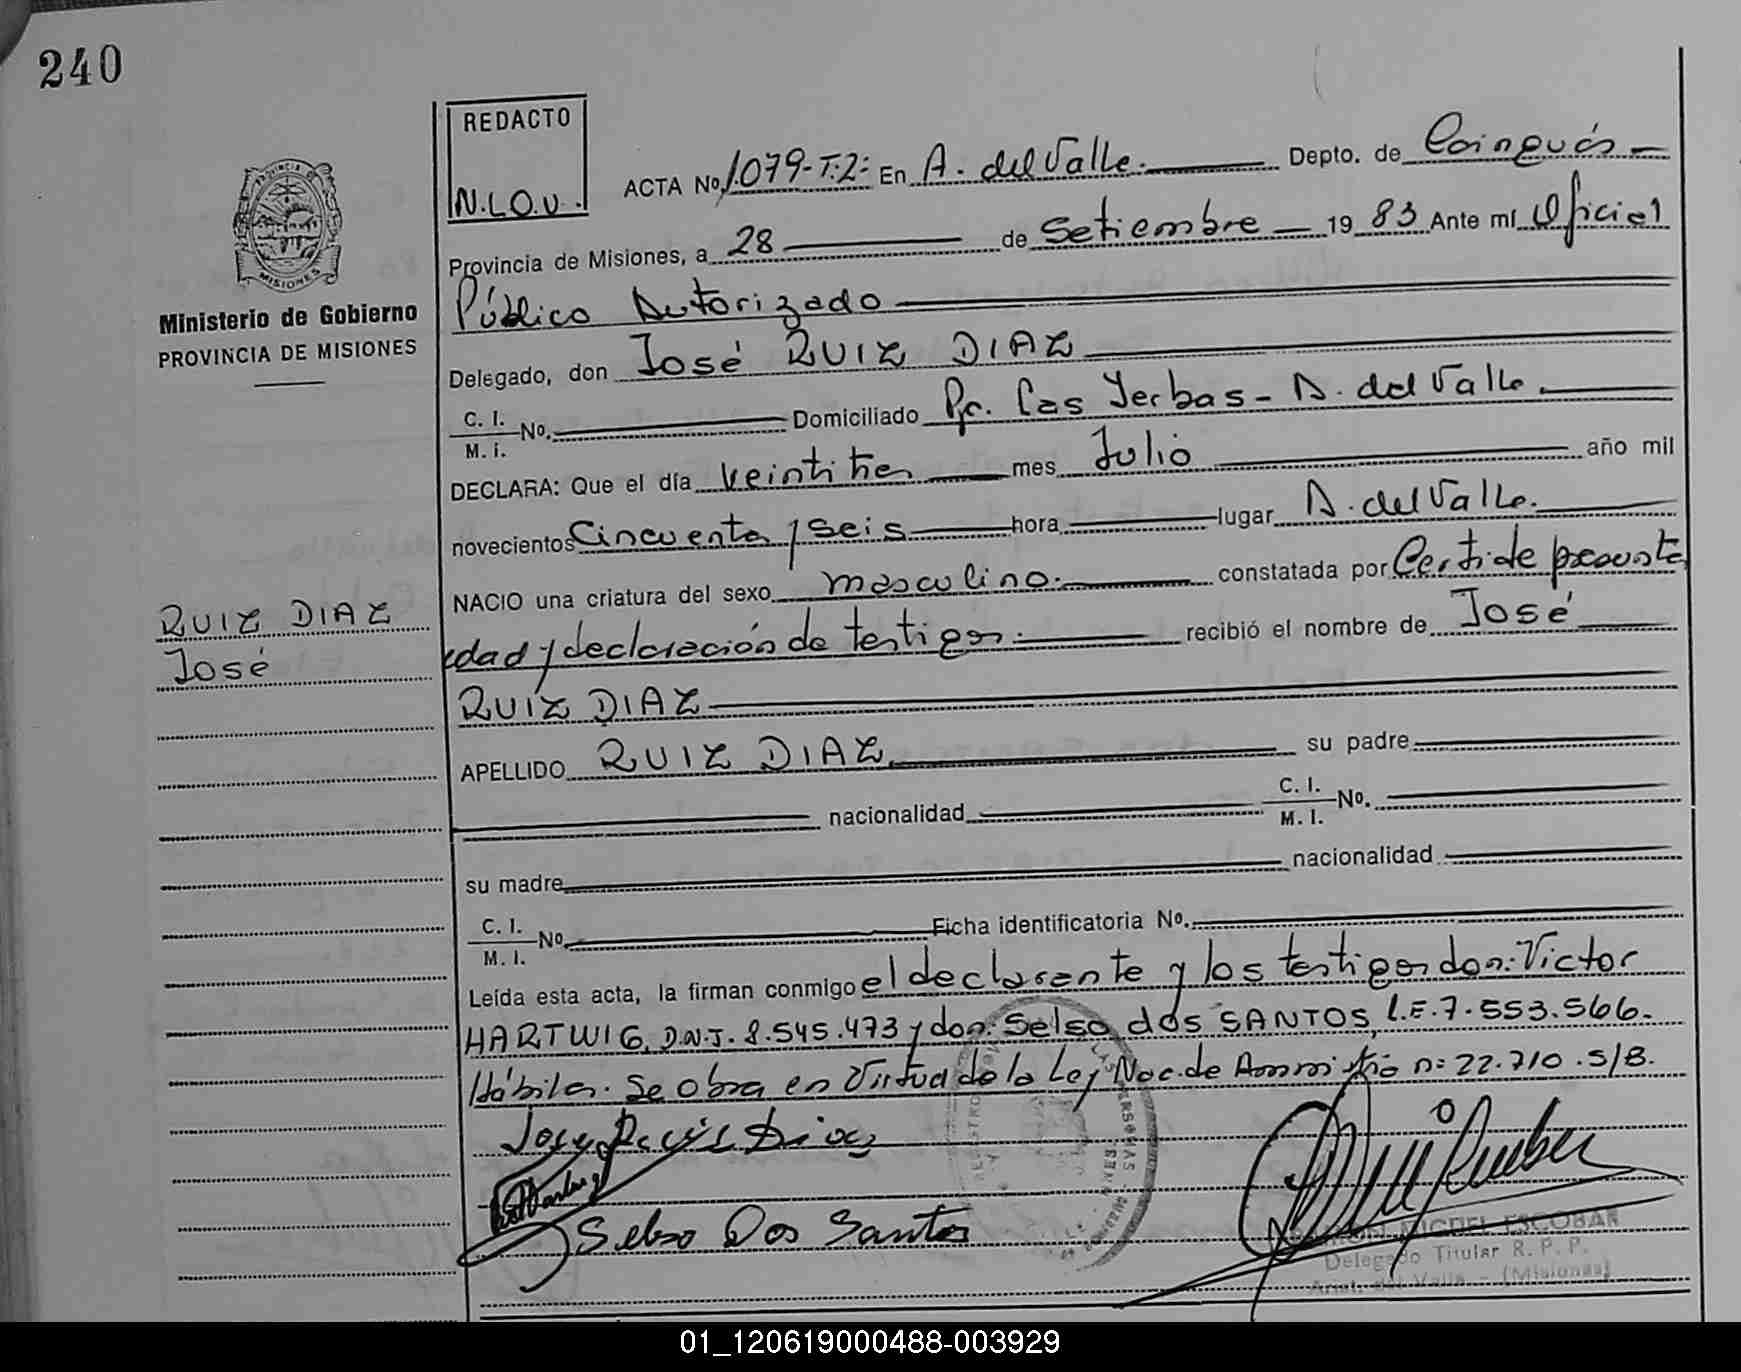 240
REDACTO
N.L.O.V.
PROVINCIA DE
MISIONES
Ministerio de Gobierno
PROVINCIA DE MISIONES
ACTA No. 1.079-T.2: En A. del Valle. Depto. de Cainguás
Provincia de Misiones, a 28 de Setiembre 19 83 Ante mí Oficial
Público Autorizado
Delegado, don José RUIZ DIAZ
C. I.
M. i. No. Domiciliado Pje. Las Yerbas - A. del Valle.
DECLARA: Que el día veintitres mes Julio año mil
novecientos Cincuenta y Seis hora lugar A. del Valle.
NACIO una criatura del sexo masculino. constatada por Certi. de presunta
edad y declaración de testigos. recibió el nombre de José
RUIZ DIAZ
RUIZ DIAZ
José
APELLIDO RUIZ DIAZ su padre
nacionalidad C. I.
M. I. No.
su madre nacionalidad
C. I.
M. I. No. Ficha identificatoria No.
Leída esta acta, la firman conmigo el declarante y los testigos don: Victor
HARTWIG, D.N.I. 8.545.473 y don: Selso dos SANTOS, L.E. 7.553.566.
Hábiles. Se obra en Virtud de la Ley Nac. de Amnistía n: 22.710.S/B.
Jose Ruis Dias
Selso Dos Santos
MIGUEL ESCOBAR
Delegado Titular R. P. P.
Arist. del Valle - (Misiones)
01_120619000488-003929